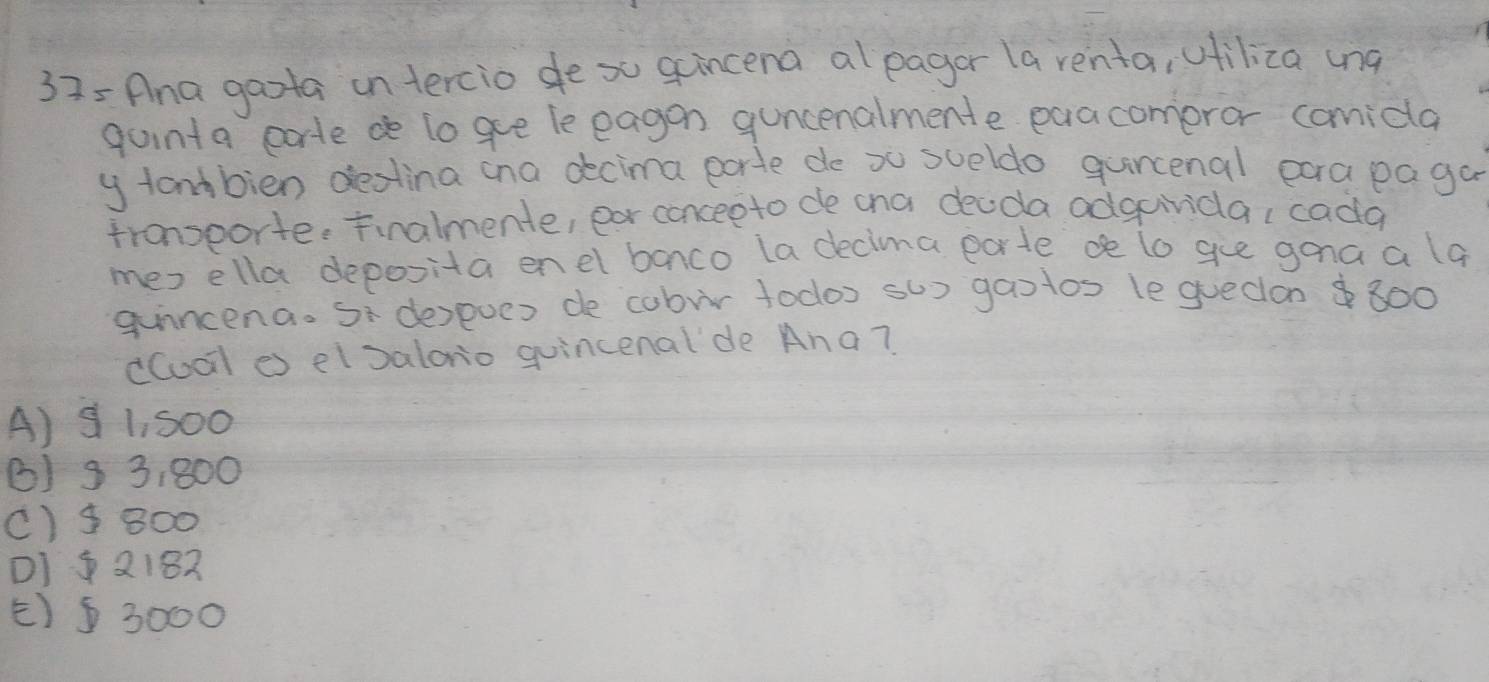 37= Ana gasta un tercio de su quincena al pagar la renta, utiliza una
quinta parte de lo que le pagan quncenalmente paa comprar comida
y tambien destina una decima parte de su sueldo quincenal para pagar
transporte. Finalmente, por concepto de una deuda adquirida, cada
mes ella deposita en el banco la decima parte de lo que gana a la
quincena. Si despues de cubrir todos sus gastos le quedan $ 800
¿Cuál es el salario quincenal de Ana?
A) $ 1,500
B) $ 3,800
C) $ 800
D) $ 2182
E) $ 3000